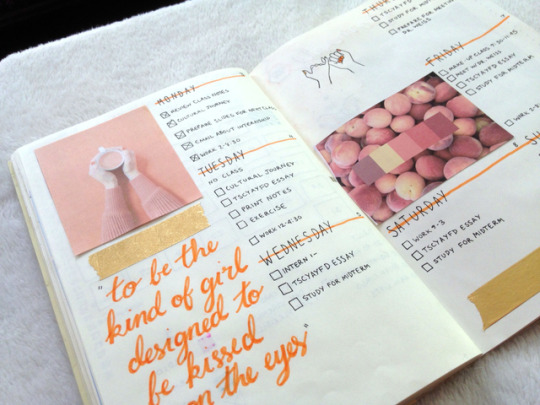 MONDAY
REVIEW CLASS NOTES
CULTURAL JOURNEY
PREPARE SLIDES FOR NEW CLASS
EMAIL ABOUT INTERNSHIP
WORK 2-8:30
TUESDAY
NO CLASS
CULTURAL JOURNEY
TSCYAYFD ESSAY
PRINT NOTES
EXERCISE
WORK 12-4:30
WEDNESDAY
INTERN 1-
TSCYAYFD ESSAY
STUDY FOR MIDTERM
"to be the
kind of girl
designed to
be kissed
on the eyes"
THUR
TSCYAYFD ESSAY
STUDY FOR MIDTERM
PREPARE FOR MEETING
DR. WEISS
FRIDAY
MAKE-UP CLASS
MEET W/ DR. WEISS
TSCYAYFD ESSAY
STUDY FOR MIDTERM
SATURDAY
8
WORK 9-3
TSCYAYFD ESSAY
STUDY FOR MIDTERM
WORK
SU